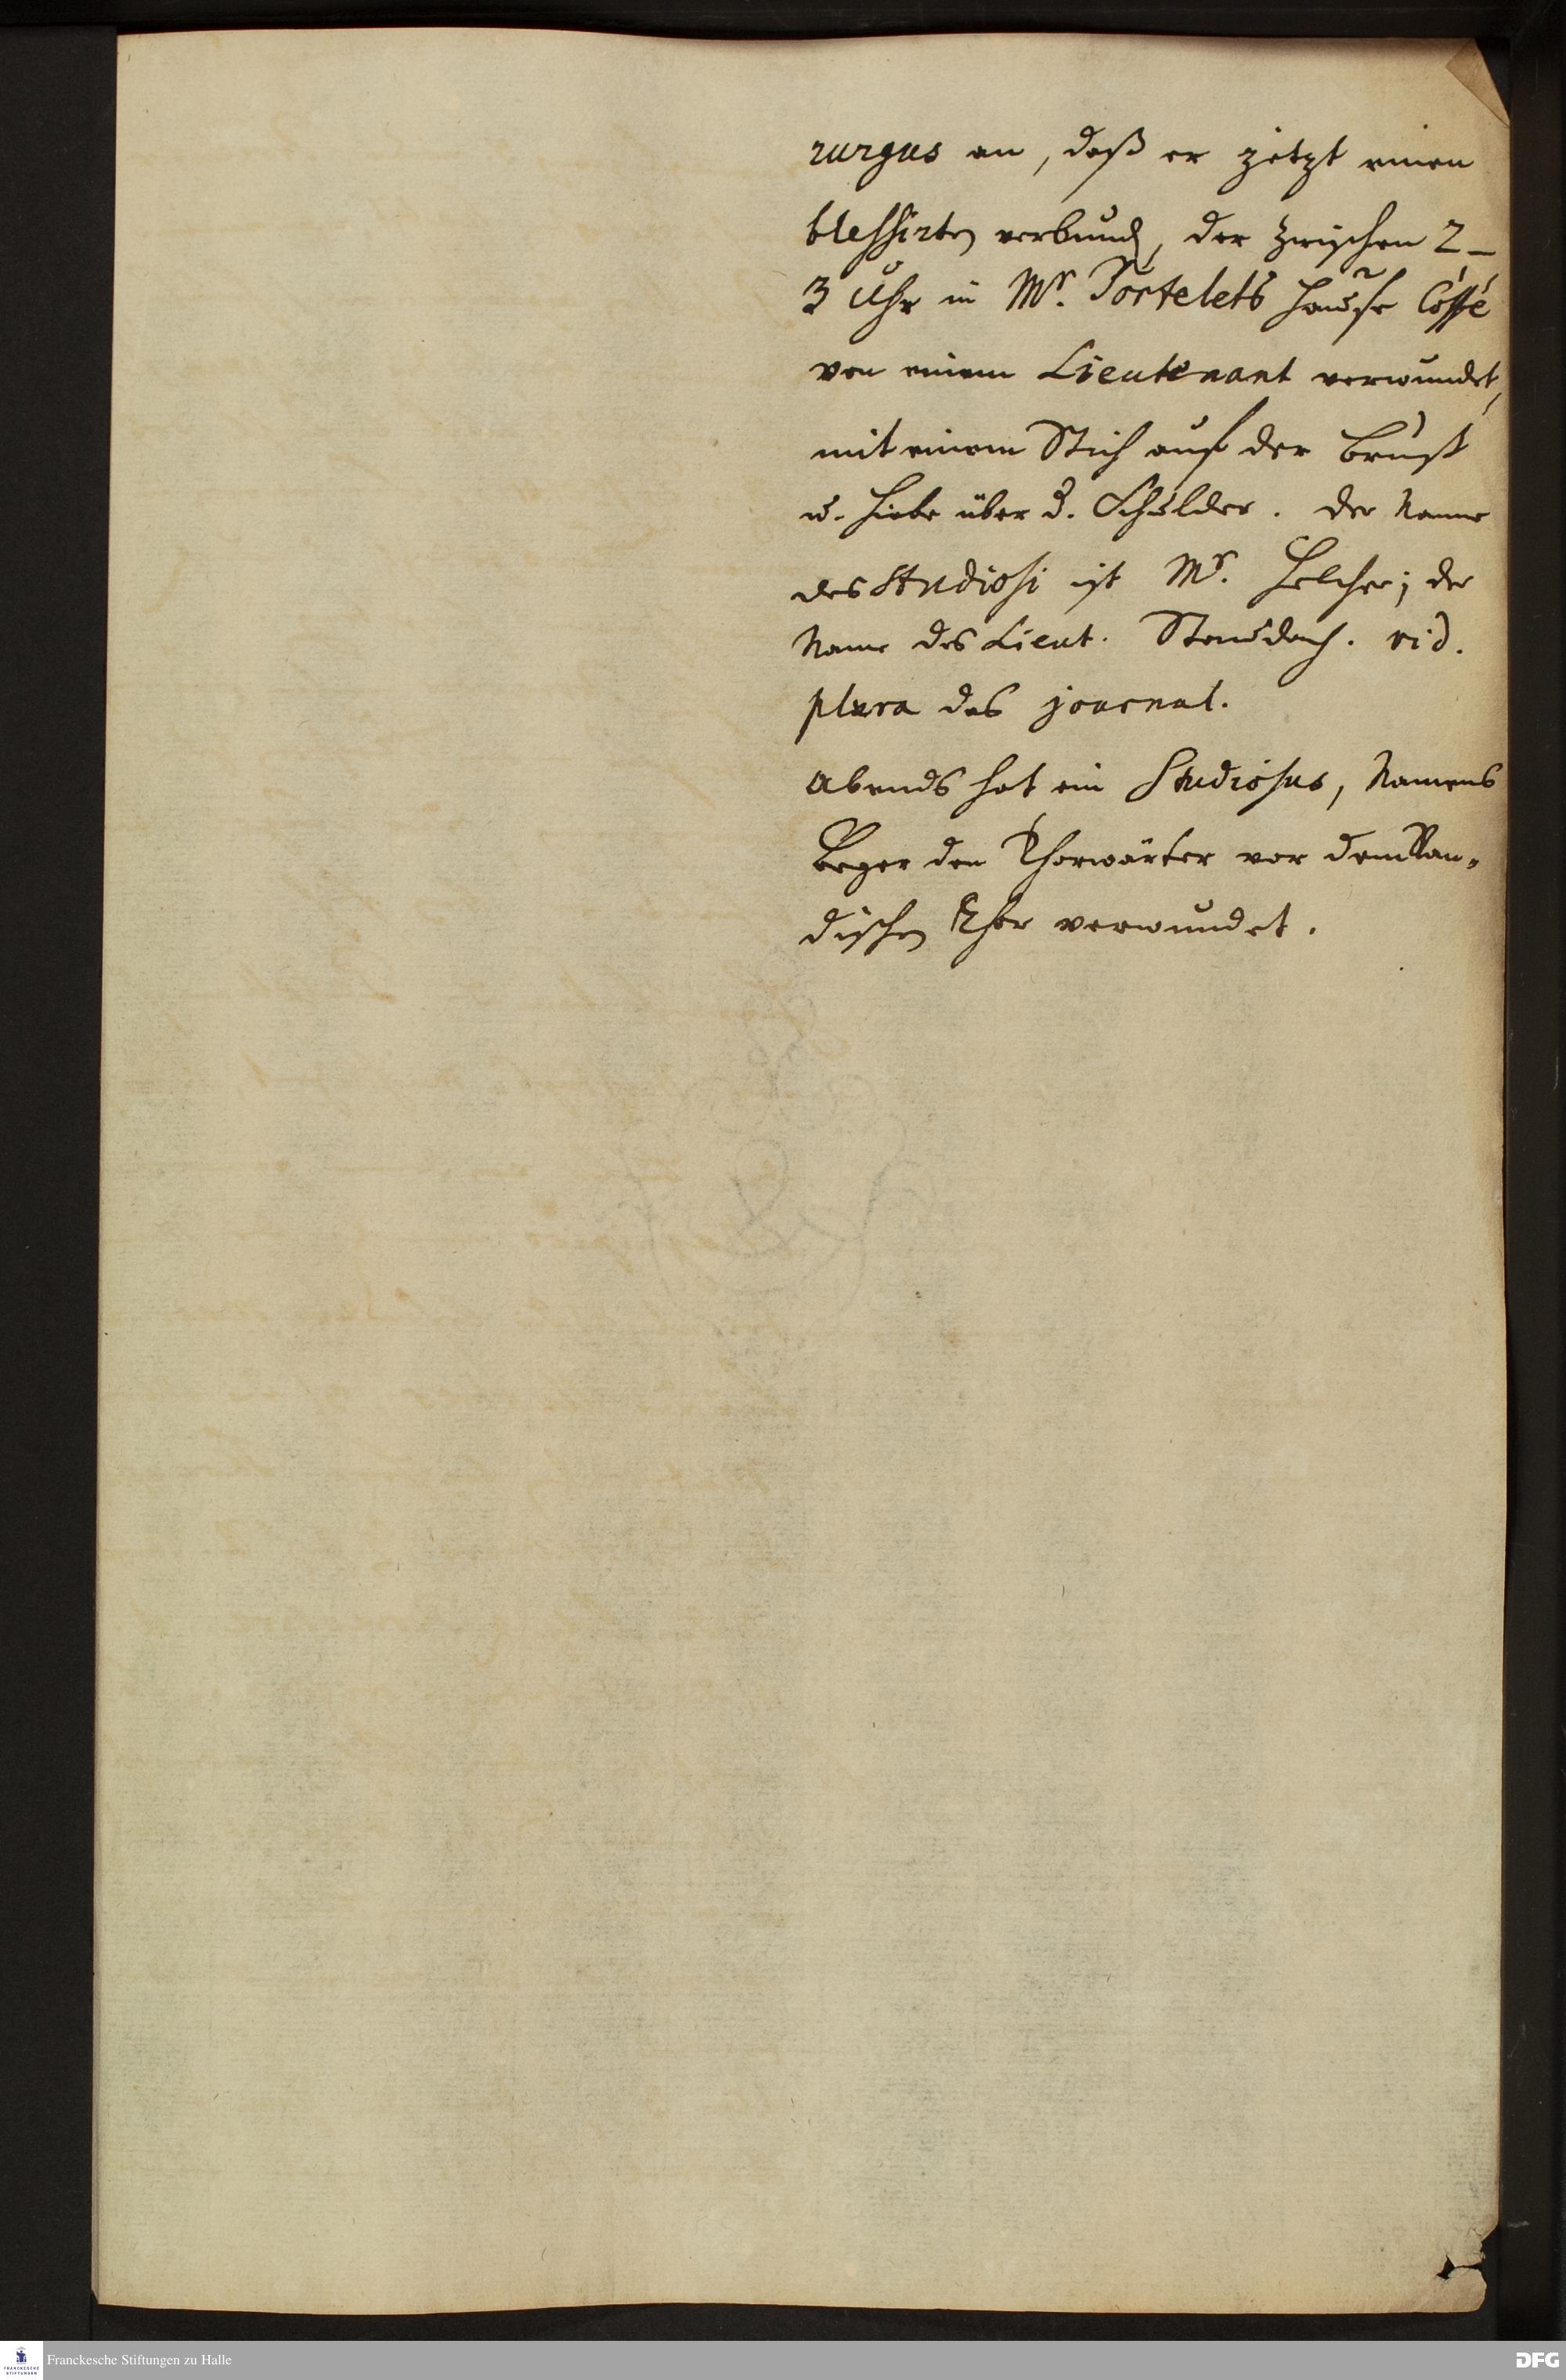 rurgus an, daß er jetzt einen
blessirten verbund, der zwischen 2_
3 Uhr in Mr. Portelets Hause Cossé
von einem Lieutenant verwundet,
mit einem Stich auf der Brust
u. Hiebe über d. Schulder. der Name
des Studiosi ist Mr. Helcher; der
Name des Lieut. Staudach. vid.
plura das journal.
Abends hat ein Studiosus, Namens
Beger den Thorwärter vor dem Ran„
dischen Thor verwundet.
Franckesche Stiftungen zu Halle
FRANCKESCHE
STIFTUNGEN
DFG